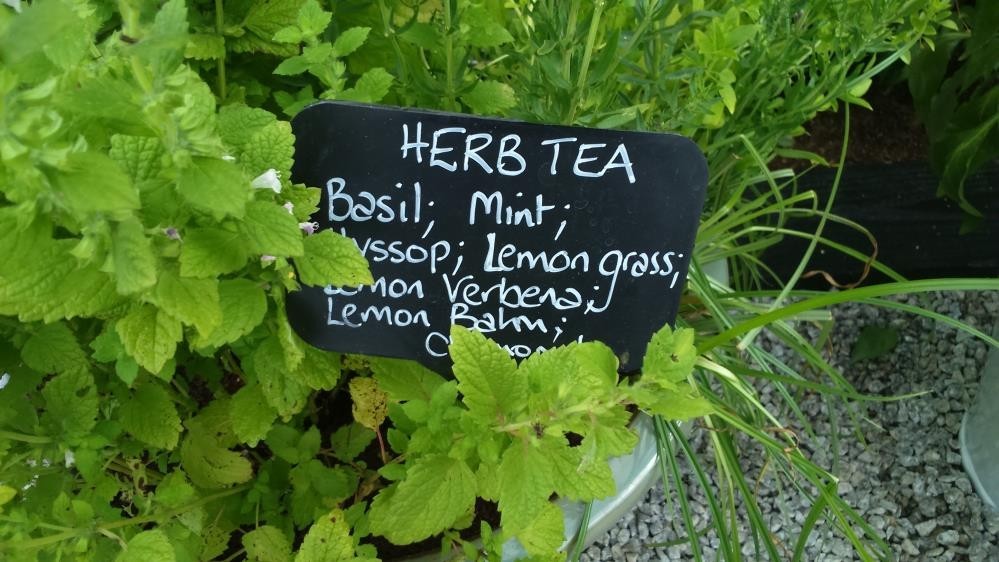 HERB TEA
Basil; Mint;
Hyssop; Lemon grass;
Lemon Verbena;
Lemon Balm;